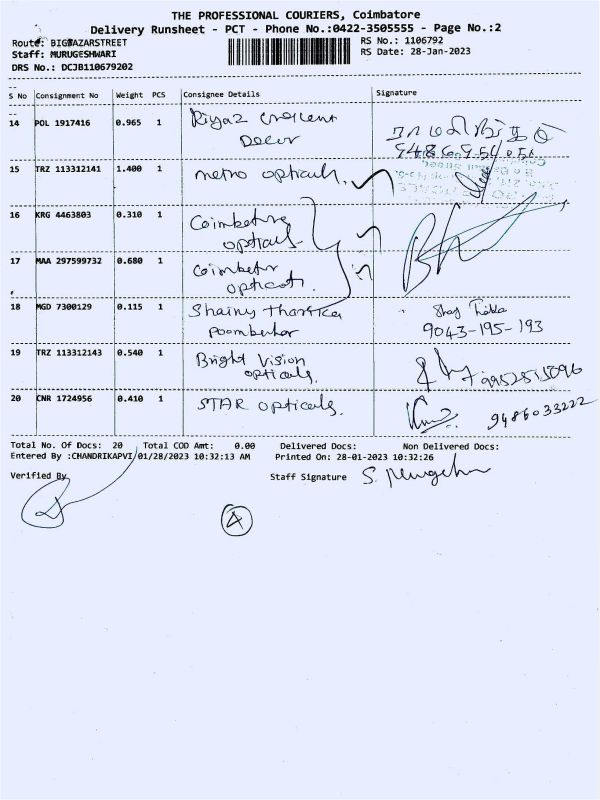 THE PROFESSIONAL COURIERS, Coimbatore
Delivery Runsheet - PCT - Phone No.:0422-3505555 - Page No.:2
Route: BIGBAZARSTREET
RS No.: 1106792
Staff: MURUGESHWARI
RS Date: 28-Jan-2023
DRS No.: DCJB110679202
S No Consignment No Weight PCS Consignee Details Signature
14 POL 1917416 0.965 1 Riyaz Crescent
Decor
15 TRZ 113312141 1.400 1 metro opticals.
16 KRG 4463803 0.310 1 Coimbatore
opticals
17 MAA 297599732 0.680 1 Coimbatore
opticals
18 MGD 7300129 0.115 1 Shainy Tharika
Poombukar
9043-195-193
19 TRZ 113312143 0.540 1 Bright Vision
opticals.
20 CNR 1724956 0.410 1 STAR opticals. 9486033222
Total No. Of Docs: 20 Total COD Amt: 0.00 Delivered Docs: Non Delivered Docs:
Entered By :CHANDRIKAPVI/01/28/2023 10:32:13 AM Printed On: 28-01-2023 10:32:26
Verified By
Staff Signature
4